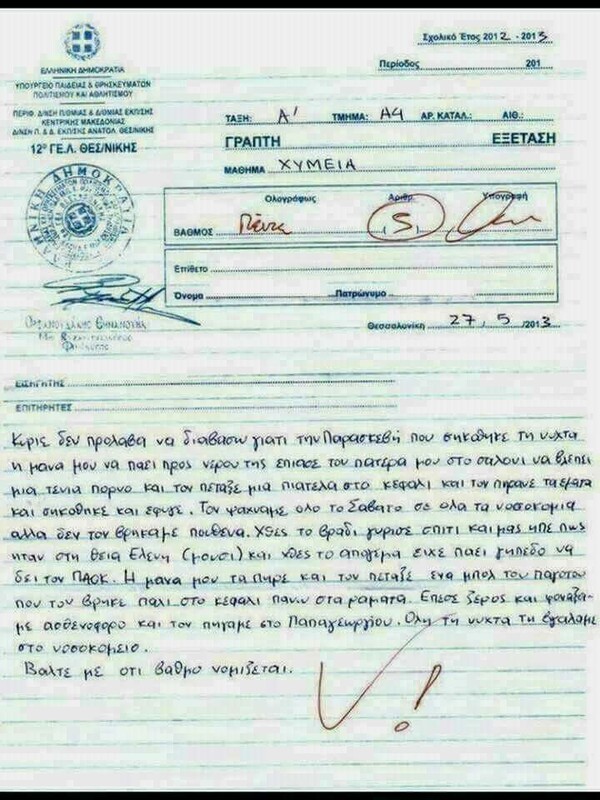 Σχολικό Έτος 2012 - 2013
Περίοδος 201
ΕΛΛΗΝΙΚΗ ΔΗΜΟΚΡΑΤΙΑ
ΥΠΟΥΡΓΕΙΟ ΠΑΙΔΕΙΑΣ & ΘΡΗΣΚΕΥΜΑΤΩΝ
ΠΟΛΙΤΙΣΜΟΥ ΚΑΙ ΑΘΛΗΤΙΣΜΟΥ
ΠΕΡΙΦ. Δ/ΝΣΗ Π/ΘΜΙΑΣ & Δ/ΘΜΙΑΣ ΕΚΠ/ΣΗΣ
ΚΕΝΤΡΙΚΗΣ ΜΑΚΕΔΟΝΙΑΣ
Δ/ΝΣΗ Π. & Δ. ΕΚΠ/ΣΗΣ ΑΝΑΤΟΛ. ΘΕΣ/ΝΙΚΗΣ
12º ΓΕ.Λ. ΘΕΣ/ΝΙΚΗΣ
ΤΑΞΗ: Α' ΤΜΗΜΑ: Α4 ΑΡ. ΚΑΤΑΛ.: ΑΙΘ.:
ΓΡΑΠΤΗ ΕΞΕΤΑΣΗ
ΜΑΘΗΜΑ ΧΥΜΕΙΑ
Ολογράφως Αριθμ. Υπογραφή
ΒΑΘΜΟΣ Πέντε 5
Επίθετο
Όνομα Πατρώνυμο
Θεσσαλονίκη 27, 5 /2013
ΕΛΛΗΝΙΚΗ ΔΗΜΟΚΡΑΤΙΑ
ΕΙΣΗΓΗΤΗΣ
ΕΠΙΤΗΡΗΤΕΣ
Κυριε δεν προλαβα να διαβασω γιατι την Παρασκεβή που σηκόθηκε τη νυχτα
η μανα μου να παει προς νερου της επιασε τον πατερα μου στο σαλονι να βλεπει
μια τενια πορνο και τον πεταξε μια πιατελα στο κεφαλι και τον πηρανε τα εματα
και σηκοθηκε και εφυγε. Τον ψαχναμε ολο το Σαβατο σε ολα τα νοσοκομια
αλλα δεν τον βρηκαμε πουθενα. Χθες το βραδι γυρισε σπιτι και μας ηπε πως
ηταν στη θεια Ελενη (μουσι) και χθες το απογεμα ειχε παει γηπεδο να
δει τον ΠΑΟΚ. Η μανα μου τα πηρε και τον πεταξε ενα μπολ του παγοτου
που τον βρηκε παλι στο κεφαλι πανω στα ραματα. Επεσε ξερος και φοναξα-
με ασθενοφορο και τον πηγαμε στο Παπαγεωργιου. Ολη τη νυχτα τη βγαλαμε
στο νοσοκομειο.
Βαλτε με οτι βαθμο νομιζεται.